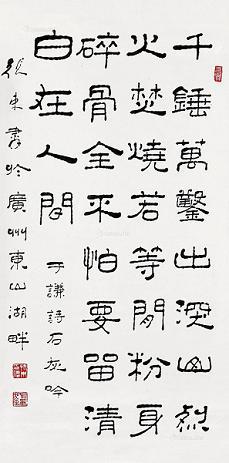 千錘萬鑿出深山烈
火焚燒若等閒粉身
碎骨全不怕要留清
白在人間
于謙詩石灰吟
張東於廣州東山湖畔